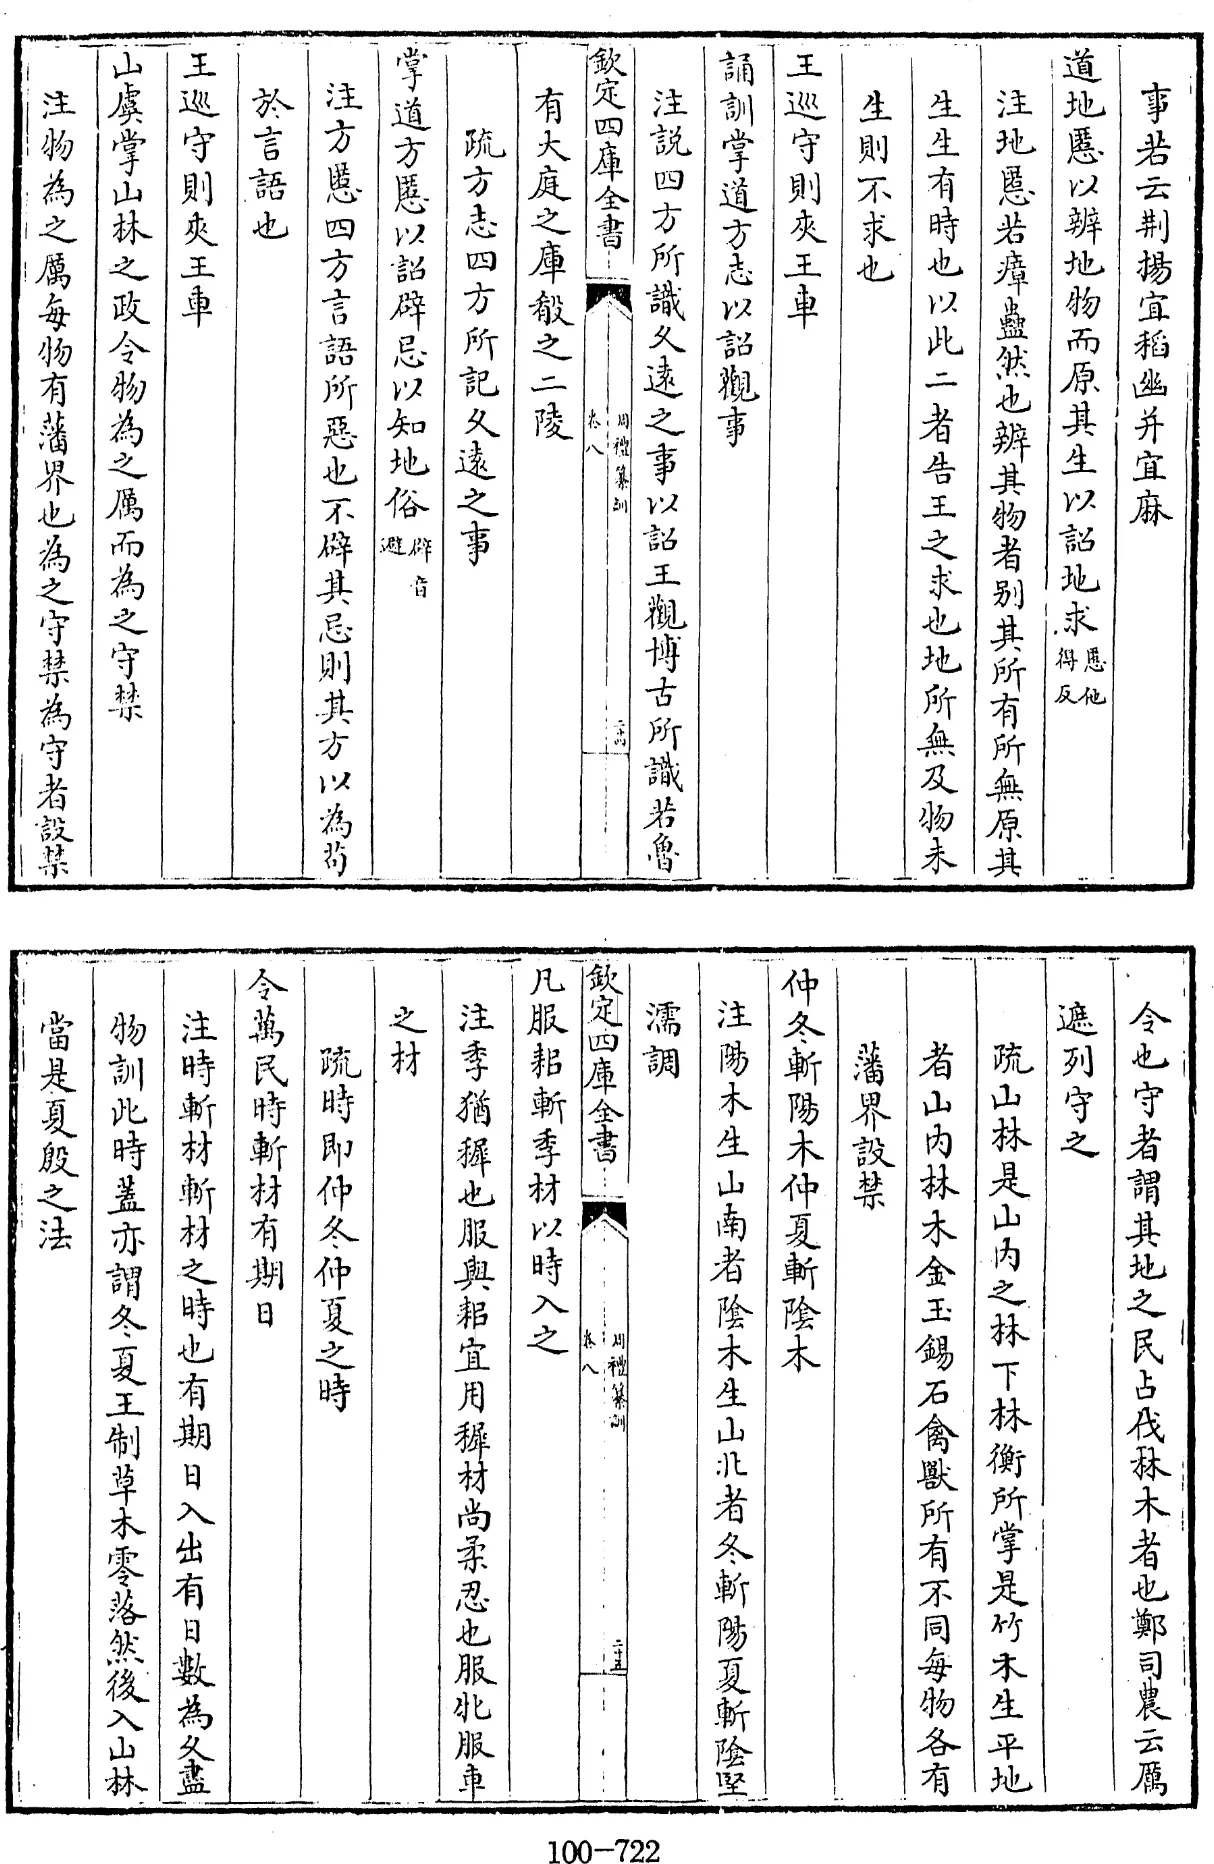 事若云荆揚宜稻幽并宜麻
道地慝以辨地物而原其生以詔地求慝他得反
注地慝若瘴蠱然也辨其物者别其所有所無原其
生生有時也以此二者告王之求也地所無及物未
生則不求也
王巡守則夾王車
誦訓掌道方志以詔觀事
注説四方所識久逺之事以詔王觀博古所識若魯
欽定四庫全書
周禮纂訓
卷八
二十四
有大庭之庫殽之二陵
疏方志四方所記久逺之事
掌道方慝以詔辟忌以知地俗辟音避
注方慝四方言語所惡也不辟其忌則其方以為苟
於言語也
王巡守則夾王車
山虞掌山林之政令物為之厲而為之守禁
注物為之厲每物有藩界也為之守禁為守者設禁
令也守者謂其地之民占伐林木者也鄭司農云厲
遮列守之
疏山林是山内之林下林衡所掌是竹木生平地
者山内林木金玉錫石禽獸所有不同每物各有
藩界設禁
仲冬斬陽木仲夏斬陰木
注陽木生山南者陰木生山北者冬斬陽夏斬陰堅
濡調
欽定四庫全書
周禮纂訓
卷八
二十五
凡服耜斬季材以時入之
注季猶穉也服與耜宜用穉材尚柔忍也服牝服車
之材
疏時即仲冬仲夏之時
令萬民時斬材有期日
注時斬材斬材之時也有期日入出有日數為久盡
物訓此時蓋亦謂冬夏王制草木零落然後入山林
當是夏殷之法
100-722